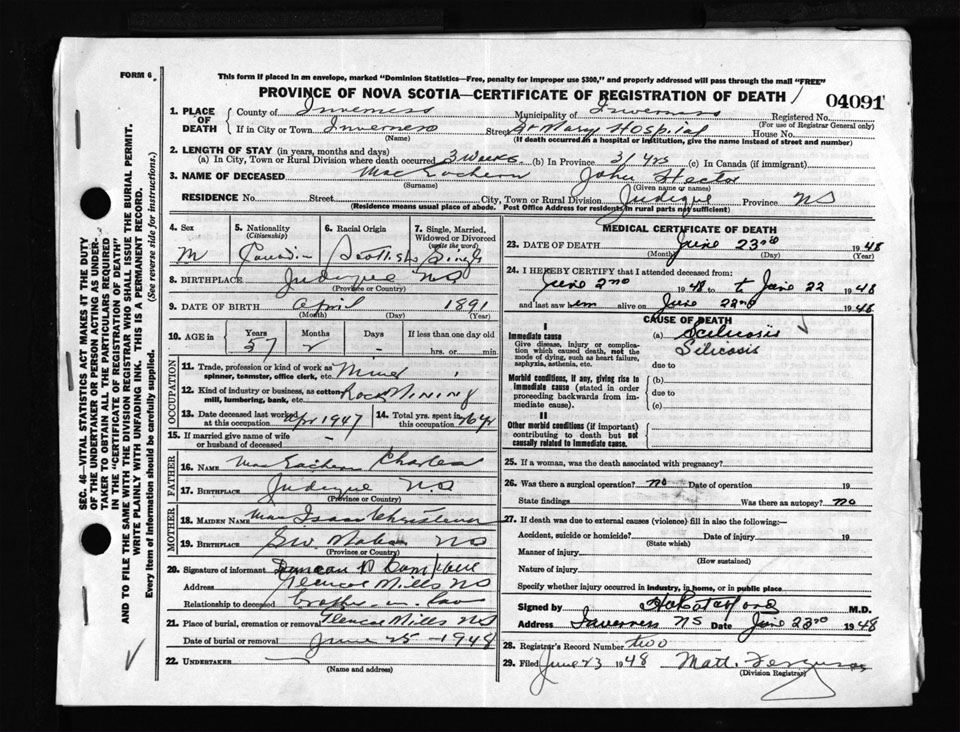 FORM 6
This form if placed in an envelope, marked "Dominion Statistics—Free, penalty for improper use $300," and properly addressed will pass through the mail "FREE"
PROVINCE OF NOVA SCOTIA—CERTIFICATE OF REGISTRATION OF DEATH
04091
1. PLACE OF DEATH
County of Inverness Municipality of Inverness Registered No.
(For use of Registrar General only)
If in City or Town Inverness Street St Mary Hospital House No.
(Name) (If death occurred in a hospital or institution, give the name instead of street and number)
2. LENGTH OF STAY (in years, months and days)
(a) In City, Town or Rural Division where death occurred 3 weeks (b) In Province 31 yrs (c) In Canada (if immigrant)
3. NAME OF DECEASED MacEachern John Hector
(Surname) (Given name or names)
RESIDENCE No. Street City, Town or Rural Division Judique Province NS
(Residence means usual place of abode. Post Office Address for residents in rural parts not sufficient)
4. Sex M
5. Nationality (Citizenship) Canadian
6. Racial Origin Scottish
7. Single, Married, Widowed or Divorced (write the word) Single
8. BIRTHPLACE Judique NS
(Province or Country)
9. DATE OF BIRTH April 1891
(Month) (Day)
10. AGE in Years 57 Months 2 Days – If less than one day old
hrs. or min.
OCCUPATION
11. Trade, profession or kind of work as spinner, teamster, office clerk, etc.
12. Kind of industry or business, as cotton mill, lumbering, bank, etc. Rock Mining
13. Date deceased last worked at this occupation Apr 1947
14. Total yrs. spent in this occupation 16 yr
15. If married give name of wife or husband of deceased –
FATHER
16. NAME MacEachern Charles
17. BIRTHPLACE Judique N.S
(Province or Country)
MOTHER
18. MAIDEN NAME MacIsaac
19. BIRTHPLACE SW Mabou NS
(Province or Country)
20. Signature of informant Duncan D Campbell
Address Glencoe Mills NS
Relationship to deceased brother-in-law
21. Place of burial, cremation or removal Glencoe Mills NS
Date of burial or removal June 25 - 1948
22. UNDERTAKER
(Name and address)
MEDICAL CERTIFICATE OF DEATH
23. DATE OF DEATH June 23rd 1948
(Month) (Day) (Year)
24. I HEREBY CERTIFY that I attended deceased from:
June 2nd 1948 to June 22 1948
and last saw him alive on June 22nd 1948
CAUSE OF DEATH
I
Immediate cause
Give disease, injury or complication which caused death, not the mode of dying, such as heart failure, asphyxia, asthenia, etc.
(a) Silicosis
Silicosis
due to
Morbid conditions, if any, giving rise to immediate cause (stated in order proceeding backwards from immediate cause).
(b)
due to
(c)
II
Other morbid conditions (if important) contributing to death but not causally related to immediate cause.
25. If a woman, was the death associated with pregnancy?
26. Was there a surgical operation? no Date of operation 19
State findings Was there an autopsy? no
27. If death was due to external causes (violence) fill in also the following:—
Accident, suicide or homicide? Date of injury 19
(State which)
Manner of injury
(How sustained)
Nature of injury
Specify whether injury occurred in industry, in home, or in public place
Signed by M.D.
Address Inverness NS Date June 23rd 1948
28. Registrar's Record Number two
29. Filed June 23 1948 Matt. Ferguson
(Division Registrar)
SEC. 46—VITAL STATISTICS ACT MAKES IT THE DUTY
OF THE UNDERTAKER OR PERSON ACTING AS UNDER-
TAKER TO OBTAIN ALL THE PARTICULARS REQUIRED
IN THE "CERTIFICATE OF REGISTRATION OF DEATH"
AND TO FILE THE SAME WITH THE DIVISION REGISTRAR WHO SHALL ISSUE THE BURIAL PERMIT.
WRITE PLAINLY WITH UNFADING INK. THIS IS A PERMANENT RECORD.
Every item of information should be carefully supplied. (See reverse side for instructions).